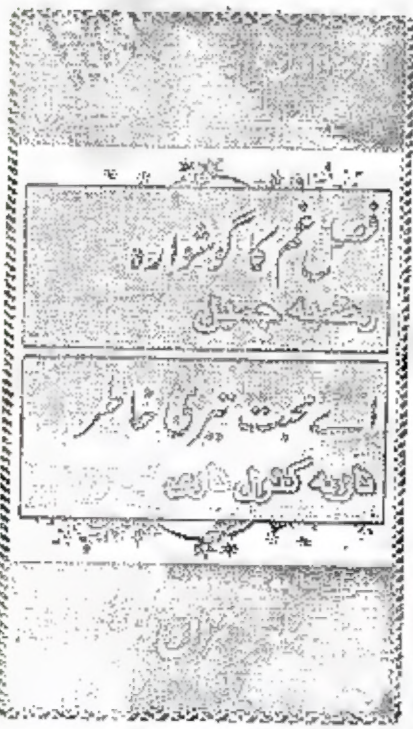 فصل غم کا گوشوارہ
رضیہ جمیل
اے محبت تیری خاطر
نازیہ کنول نازی